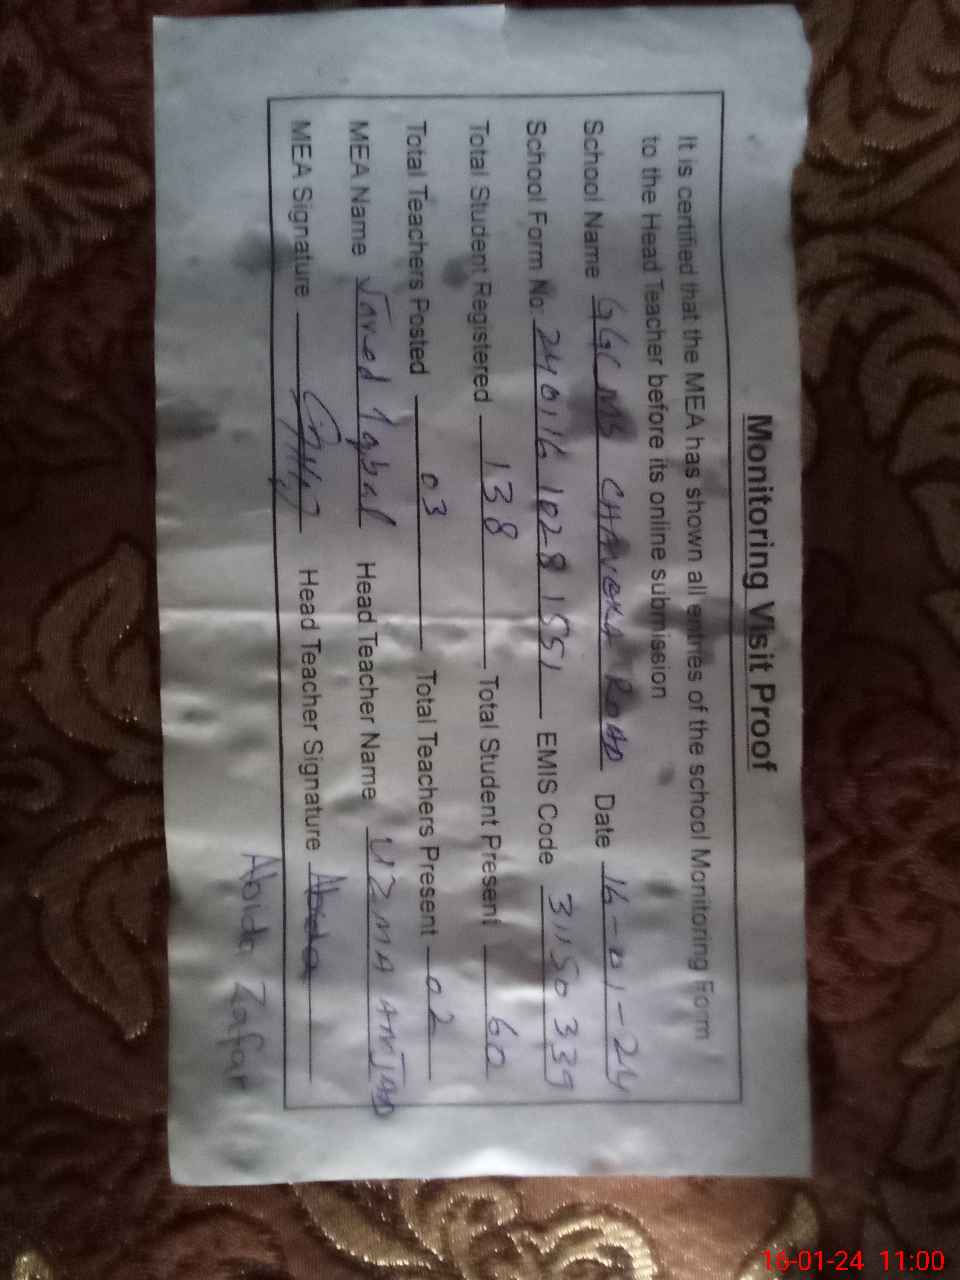 Monitoring Visit Proof
It is certified that the MEA has shown all entries of the school Monitoring Form
to the Head Teacher before its online submission
School Name GGCMS CHAVEKA ROAD Date 16-01-24
School Form No. 240116 1028 1551 EMIS Code 31150339
Total Student Registered 138 Total Student Present 60
Total Teachers Posted 03 Total Teachers Present 02
MEA Name Javed Iqbal Head Teacher Name UZMA AMJAD
MEA Signature Head Teacher Signature Abida
Abida Zafar
16-01-24 11:00